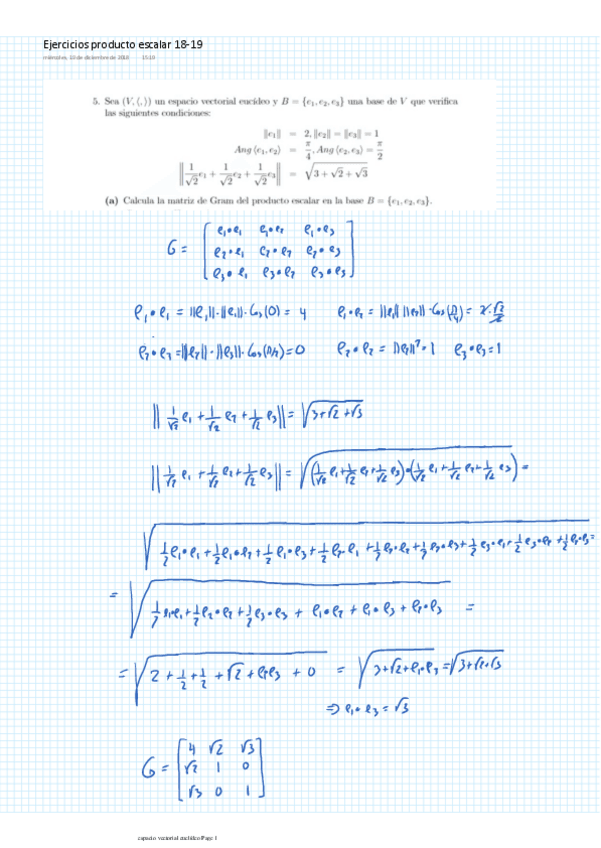 Ejercicios producto escalar 18-19
miércoles, 19 de diciembre de 2018 15:19
5. Sea (V, ⟨, ⟩) un espacio vectorial eucídeo y B = {e₁, e₂, e₃} una base de V que verifica
las siguientes condiciones:
‖e₁‖ = 2, ‖e₂‖ = ‖e₃‖ = 1
Ang ⟨e₁, e₂⟩ = π/4, Ang ⟨e₂, e₃⟩ = π/2
‖1/√2 e₁ + 1/√2 e₂ + 1/√2 e₃‖ = √(3 + √2 + √3)
(a) Calcula la matriz de Gram del producto escalar en la base B = {e₁, e₂, e₃}.
G = [e₁•e₁ e₁•e₂ e₁•e₃
e₂•e₁ e₂•e₂ e₂•e₃
e₃•e₁ e₃•e₂ e₃•e₃]
e₁•e₁ = ‖e₁‖·‖e₁‖·Cos(0) = 4 e₁•e₂ = ‖e₁‖ ‖e₂‖·Cos(π/4) = 2·√2/2
e₂•e₃ = ‖e₂‖·‖e₃‖·Cos(π/2) = 0 e₂•e₂ = ‖e₂‖² = 1 e₃•e₃ = 1
‖1/√2 e₁ + 1/√2 e₂ + 1/√2 e₃‖ = √(3+√2+√3)
‖1/√2 e₁ + 1/√2 e₂ + 1/√2 e₃‖ = √((1/√2 e₁ + 1/√2 e₂ + 1/√2 e₃)•(1/√2 e₁ + 1/√2 e₂ + 1/√2 e₃)) =
√(1/2 e₁•e₁ + 1/2 e₁•e₂ + 1/2 e₁•e₃ + 1/2 e₂•e₁ + 1/2 e₂•e₂ + 1/2 e₂•e₃ + 1/2 e₃•e₁ + 1/2 e₃•e₂ + 1/2 e₃•e₃ =
= √(1/2 e₁•e₁ + 1/2 e₂•e₂ + 1/2 e₃•e₃ + e₁•e₂ + e₁•e₃ + e₂•e₃) =
= √(2 + 1/2 + 1/2 + √2 + e₁•e₃ + 0) = √(3+√2+e₁•e₃) = √(3+√2+√3)
⇒ e₁•e₃ = √3
G = [4 √2 √3
√2 1 0
√3 0 1]
espacio vectorial euclídeo Page 1